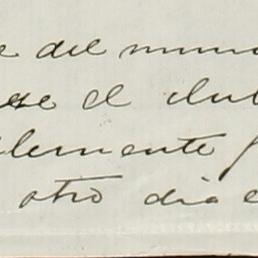 e del mun
se el dul
lemente
otro dia e